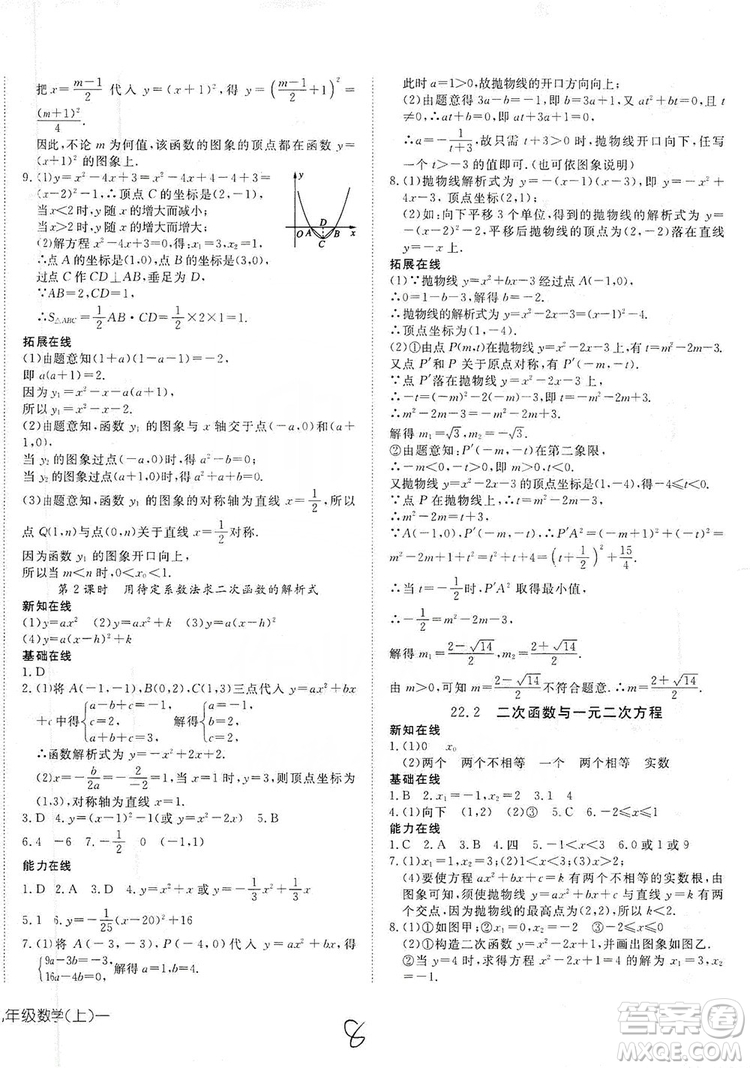 把 x=(m-1)/2 代入 y=(x+1)²,得 y=((m-1)/2+1)²=
(m+1)²/4.
因此,不论 m 为何值,该函数的图象的顶点都在函数 y=
(x+1)² 的图象上.
9.(1)y=x²-4x+3=x²-4x+4-4+3=
(x-2)²-1,∴顶点 C 的坐标是(2,-1),
当 x<2 时,y 随 x 的增大而减小;
当 x>2 时,y 随 x 的增大而增大.
(2)解方程 x²-4x+3=0得:x₁=3,x₂=1,
∴点 A 的坐标是(1,0),点 B 的坐标是(3,0),
过点 C 作 CD⊥AB,垂足为 D,
∵AB=2,CD=1,
∴S△ABC=1/2AB·CD=1/2×2×1=1.
y
O A D B x
C
拓展在线
(1)由题意知(1+a)(1-a-1)=-2,
即 a(a+1)=2.
因为 y₁=x²-x-a²-a,
所以 y₁=x²-x-2.
(2)由题意知,函数 y₁ 的图象与 x 轴交于点(-a,0)和(a
+1,0).
当 y₂ 的图象过点(-a,0)时,得 a²-b=0;
当 y₂ 的图象过点(a+1,0)时,得 a²+a+b=0.
(3)由题意知,函数 y₁ 的图象的对称轴为直线 x=1/2,所以
点 Q(1,n)与点(0,n)关于直线 x=1/2对称.
因为函数 y₁ 的图象开口向上,
所以当 m<n 时,0<x₀<1.
第 2 课时 用待定系数法求二次函数的解析式
新知在线
(1)y=ax² (2)y=ax²+k (3)y=a(x-h)²
(4)y=a(x-h)²+k
基础在线
1.D
2.(1)将 A(-1,-1),B(0,2),C(1,3)三点代入 y=ax²+bx
+c 中得:{a-b+c=-1 c=2 a+b+c=3 解得:{a=-1 b=2 c=2
∴函数解析式为 y=-x²+2x+2
(2)x=-b/2a=-2/-2=1;当 x=1 时,y=3,∴顶点坐标为
(1,3),对称轴为直线 x=1.
3.D 4.y=(x-1)²-1(或 y=x²-2x) 5.B
6.4 -6 7.-1/2 0 (-1,1)
能力在线
1.D 2.A 3.D 4.y=1/3x²-2/3x 或 y=-1/3x²+1/3
5.1 6.y=-1/25(x-20)²+16
7.(1)将 A(-3,-3),P(-4,0)代入 y=ax²+bx,得
{9a-3b=-3 16a-4b=0,解得{a=1 b=4.∴抛物线解析式为 y=x²+4x.
九年级数学(上)—
8
此时 a=1>0,故抛物线的开口方向向上;
(2)由题意得 3a-b=-3,即 b=3a+1,又 at²+bt=0,t
≠0,∴at+b=0,即 at+3a+1=0,
∴a=-1/(t+3),故只需 t+3<0,即 t<-3,∴t=-4,-5 等,写
任何一个 <-3 的值即可.(也可依图象说明)
8.(1)抛物线解析式为 y=-(x-1)(x-3),即 y=-x²+
4x-3,顶点坐标为(2,1);
(2)如:向下平移 3 个单位,得到的抛物线的解析式为 y=
-x²+4x-6,平移后抛物线的顶点为(2,-2)落在直线
y=-x 上.
拓展在线
(1)∵抛物线 y=x²+bx-3 经过点 A(-1,0),
∴0=1-b-3,解得 b=-2.
∴抛物线的解析式为 y=x²-2x-3.
∵y=x²-2x-3=(x-1)²-4,
∴顶点坐标为(1,-4).
(2)①由点 P(m,t)在抛物线 y=x²-2x-3 上,有 t=m²-2m-3.
又点 P′ 和 P 关于原点对称,有 P′(-m,-t).
因点 P′ 落在抛物线 y=x²-2x-3 上,
∴-t=(-m)²-2(-m)-3,即 t=-m²-2m+3.
∴m²-2m-3=-m²-2m+3.
解得 m₁=√3,m₂=-√3.
②由题意知:P′(-m,-t)在第二象限,
∴-m<0,-t>0,即 m>0,t<0.
又抛物线 y=x²-2x-3 的顶点坐标是(1,-4),得-4≤t<0.
∵t=m²-2m-3,∴m²-2m=t+3.
∵A(-1,0),P′(-m,-t),∴P′A²=(-m+1)²+(-t)²=
m²-2m+1+t²=t²+t+4,∴P′A²=(t+1/2)²+15/4.
∴当 t=-1/2时,P′A² 取得最小值.
∴-1/2=m²-2m-3,
解得 m₁=(2-√14)/2,m₂=(2+√14)/2.
由 m>0,可知 m=(2-√14)/2不合题意,∴m=(2+√14)/2.
22.2 二次函数与一元二次方程
新知在线
1.(1)0 x₀
(2)两个 两个不相等 一个 两个相等 实数
基础在线
1.B 2.x₁=1,x₂=2 3.1 4
4.(1)向下 (1,4) (2)0(答案不唯一) 5.B 6.-2≤x≤1
能力在线
1.D 2.B 3.A 4.四 5.-1<x<3 6.-1 或 2 或 1 或 9
7.(1)x₁=1,x₂=3 (2)1<x<3 (3)x>2
(4)要使方程 ax²+bx+c=k 有两个不相等的实数根,由
图象可知,须使抛物线 y=ax²+bx+c 与直线 y=k 有两
个交点,因为抛物线的最高点为(2,2),所以 k<2.
8.(1)①如图甲;②方程的解为 x=0,-2;③-2≤x≤0.
(2)①构造二次函数 y=x²-2x+1,并画出图象如图乙
22.-1.
作业精灵
MXQE.COM